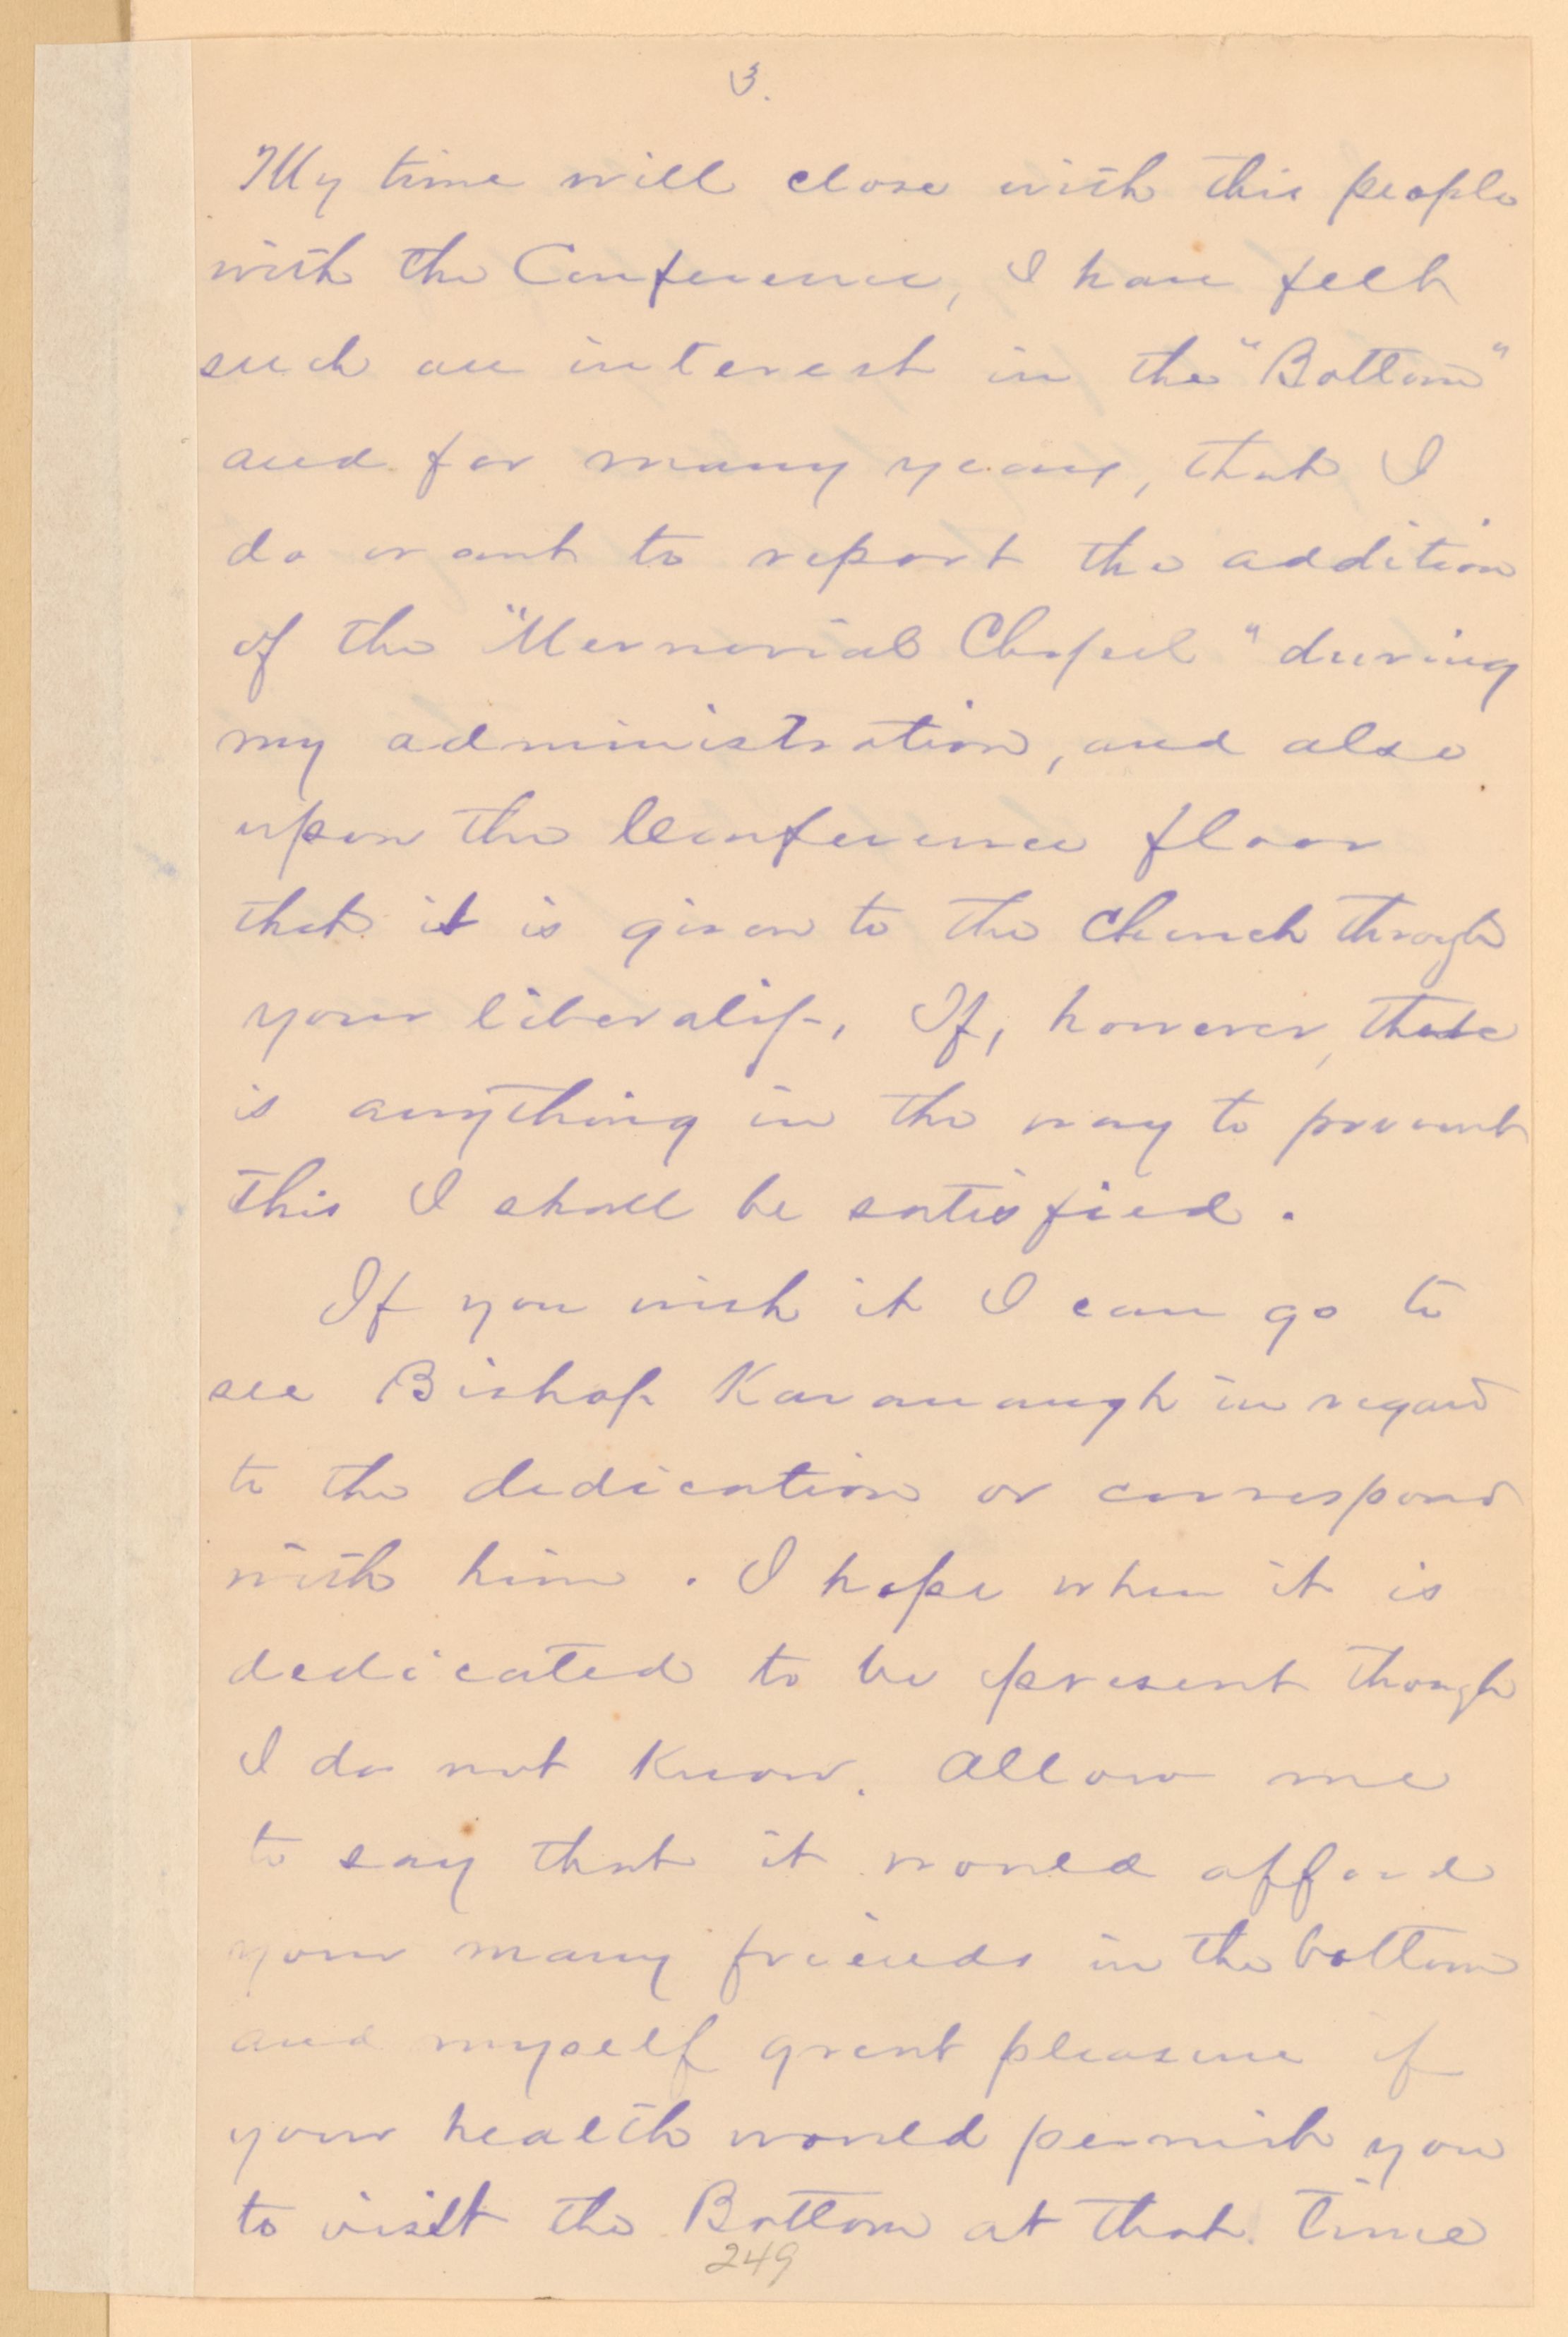 3.
My time will close with this people
with the Conference, I have felt
such an interest in the "Bottom"
and for many years, that I
do want to report the addition
of the "Memorial Chapel" during
my administration, and also
upon the Conference floor
that it is given to the Church through
your liberality. If, however, there
is anything in the way to prevent
this I shall be satisfied.
If you wish it I can go to
see Bishop Kavanaugh in regard
to the dedication or correspond
with him. I hope when it is
dedicated to be present though
I do not know. Allow me
to say that it would afford
your many friends in the bottom
and myself great pleasure if
your health would permit you
to visit the Bottom at that time
249